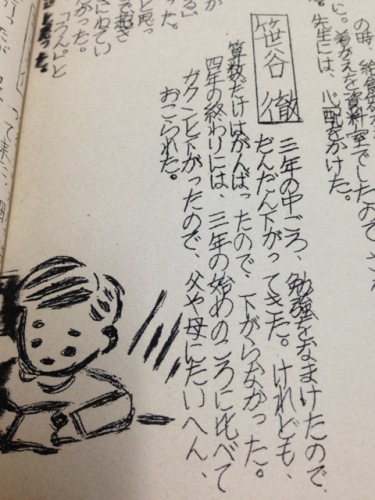 の時、給食
に。着がえを資料室でしたので、
先生には、心配をかけた。
笹谷 徹
三年の中ごろ、勉強をなまけたので、
だんだん下がってきた。けれども、
算数だけはがんばったので、下がらなかった。
四年の終わりには、三年の始めのころに比べて
ガクンと下がったので、父や母にたいへん、
おこられた。
と思っ
た。
で起き
にねてい
かった。